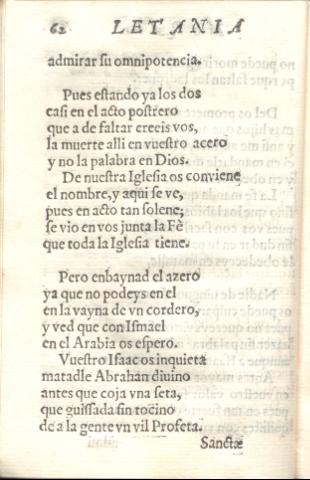 62 LETANIA
admirar su omnipotencia.
Pues estando ya los dos
casi en el acto postrero
que a de faltar creeis vos,
la muerte alli en vuestro acero
y no la palabra en Dios.
De nuestra Iglesia os conviene
el nombre, y aqui se ve,
pues en acto tan solene;
se vio en vos junta la Fè
que toda la Iglesia tiene.
Pero enbaynad el azero
ya que no podeys en el
en la vayna de vn cordero,
y ved que con Ismael
en el Arabia os espero.
Vuestro Isaac os inquieta
matadle Abrahan diuino
antes que coja vna seta,
que guissada sin tocino
de a la gente vn vil Profeta.
Sanctæ